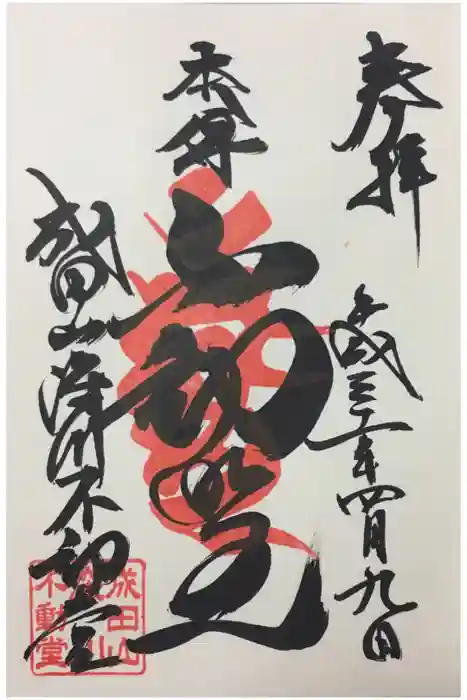 奉拝
平成三十一年四月九日
本尊
不動明王
成田山深川不動堂
成田山
深川
不動堂